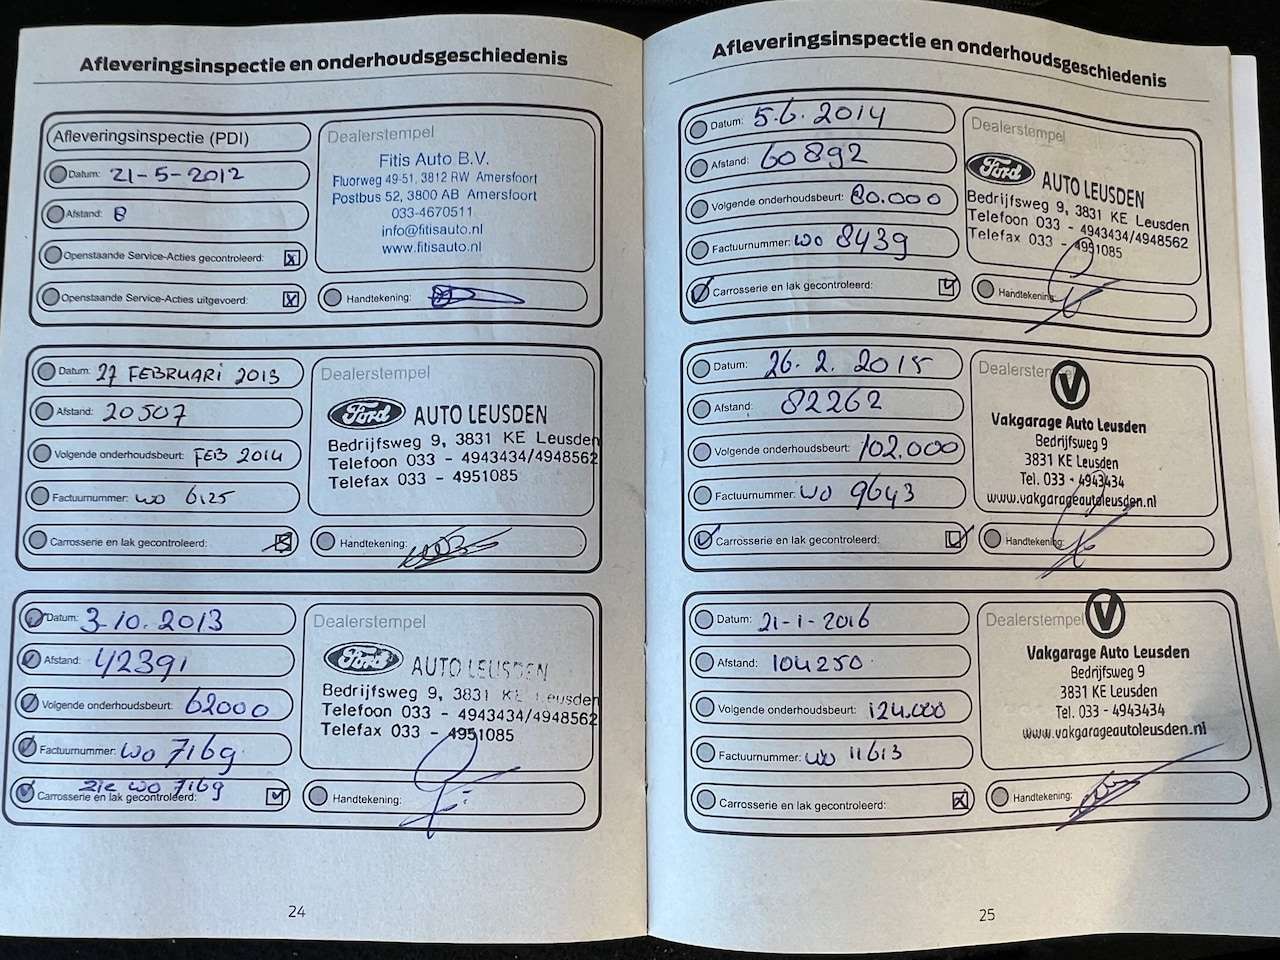 Afleveringsinspectie en onderhoudsgeschiedenis
Afleveringsinspectie (PDI)
Datum: 21-5-2012
Afstand: 8
Openstaande Service-Acties gecontroleerd:
Openstaande Service-Acties uitgevoerd:
Dealerstempel
Fitis Auto B.V.
Fluorweg 49-51, 3812 RW Amersfoort
Postbus 52, 3800 AB Amersfoort
033-4670511
info@fitisauto.nl
www.fitisauto.nl
Handtekening:
Datum: 27 FEBRUARI 2013
Afstand: 20507
Volgende onderhoudsbeurt: FEB 2014
Factuurnummer: WO 6125
Carrosserie en lak gecontroleerd:
Dealerstempel
Ford AUTO LEUSDEN
Bedrijfsweg 9, 3831 KE Leusden
Telefoon 033 - 4943434/4948562
Telefax 033 - 4951085
Handtekening:
Datum: 3-10.2013
Afstand: 42391
Volgende onderhoudsbeurt: 62000
Factuurnummer: WO 7169
zie WO 7169
Carrosserie en lak gecontroleerd:
Dealerstempel
Ford AUTO LEUSDEN
Bedrijfsweg 9, 3831 KE Leusden
Telefoon 033 - 4943434/4948562
Telefax 033 - 4951085
Handtekening:
24
Afleveringsinspectie en onderhoudsgeschiedenis
Datum: 5.6.2014
Afstand: 60892
Volgende onderhoudsbeurt: 80.000
Factuurnummer: WO 8439
Carrosserie en lak gecontroleerd:
Dealerstempel
Ford AUTO LEUSDEN
Bedrijfsweg 9, 3831 KE Leusden
Telefoon 033 - 4943434/4948562
Telefax 033 - 4951085
Handtekening:
Datum: 26.2.2015
Afstand: 82262
Volgende onderhoudsbeurt: 102.000
Factuurnummer: WO 9643
Carrosserie en lak gecontroleerd:
Dealerstempel
V
Vakgarage Auto Leusden
Bedrijfsweg 9
3831 KE Leusden
Tel. 033 - 4943434
www.vakgarageautoleusden.nl
Handtekening:
Datum: 21-1-2016
Afstand: 104250
Volgende onderhoudsbeurt: 124.000
Factuurnummer: WO 11613
Carrosserie en lak gecontroleerd:
Dealerstempel
V
Vakgarage Auto Leusden
Bedrijfsweg 9
3831 KE Leusden
Tel. 033 - 4943434
www.vakgarageautoleusden.nl
Handtekening:
25